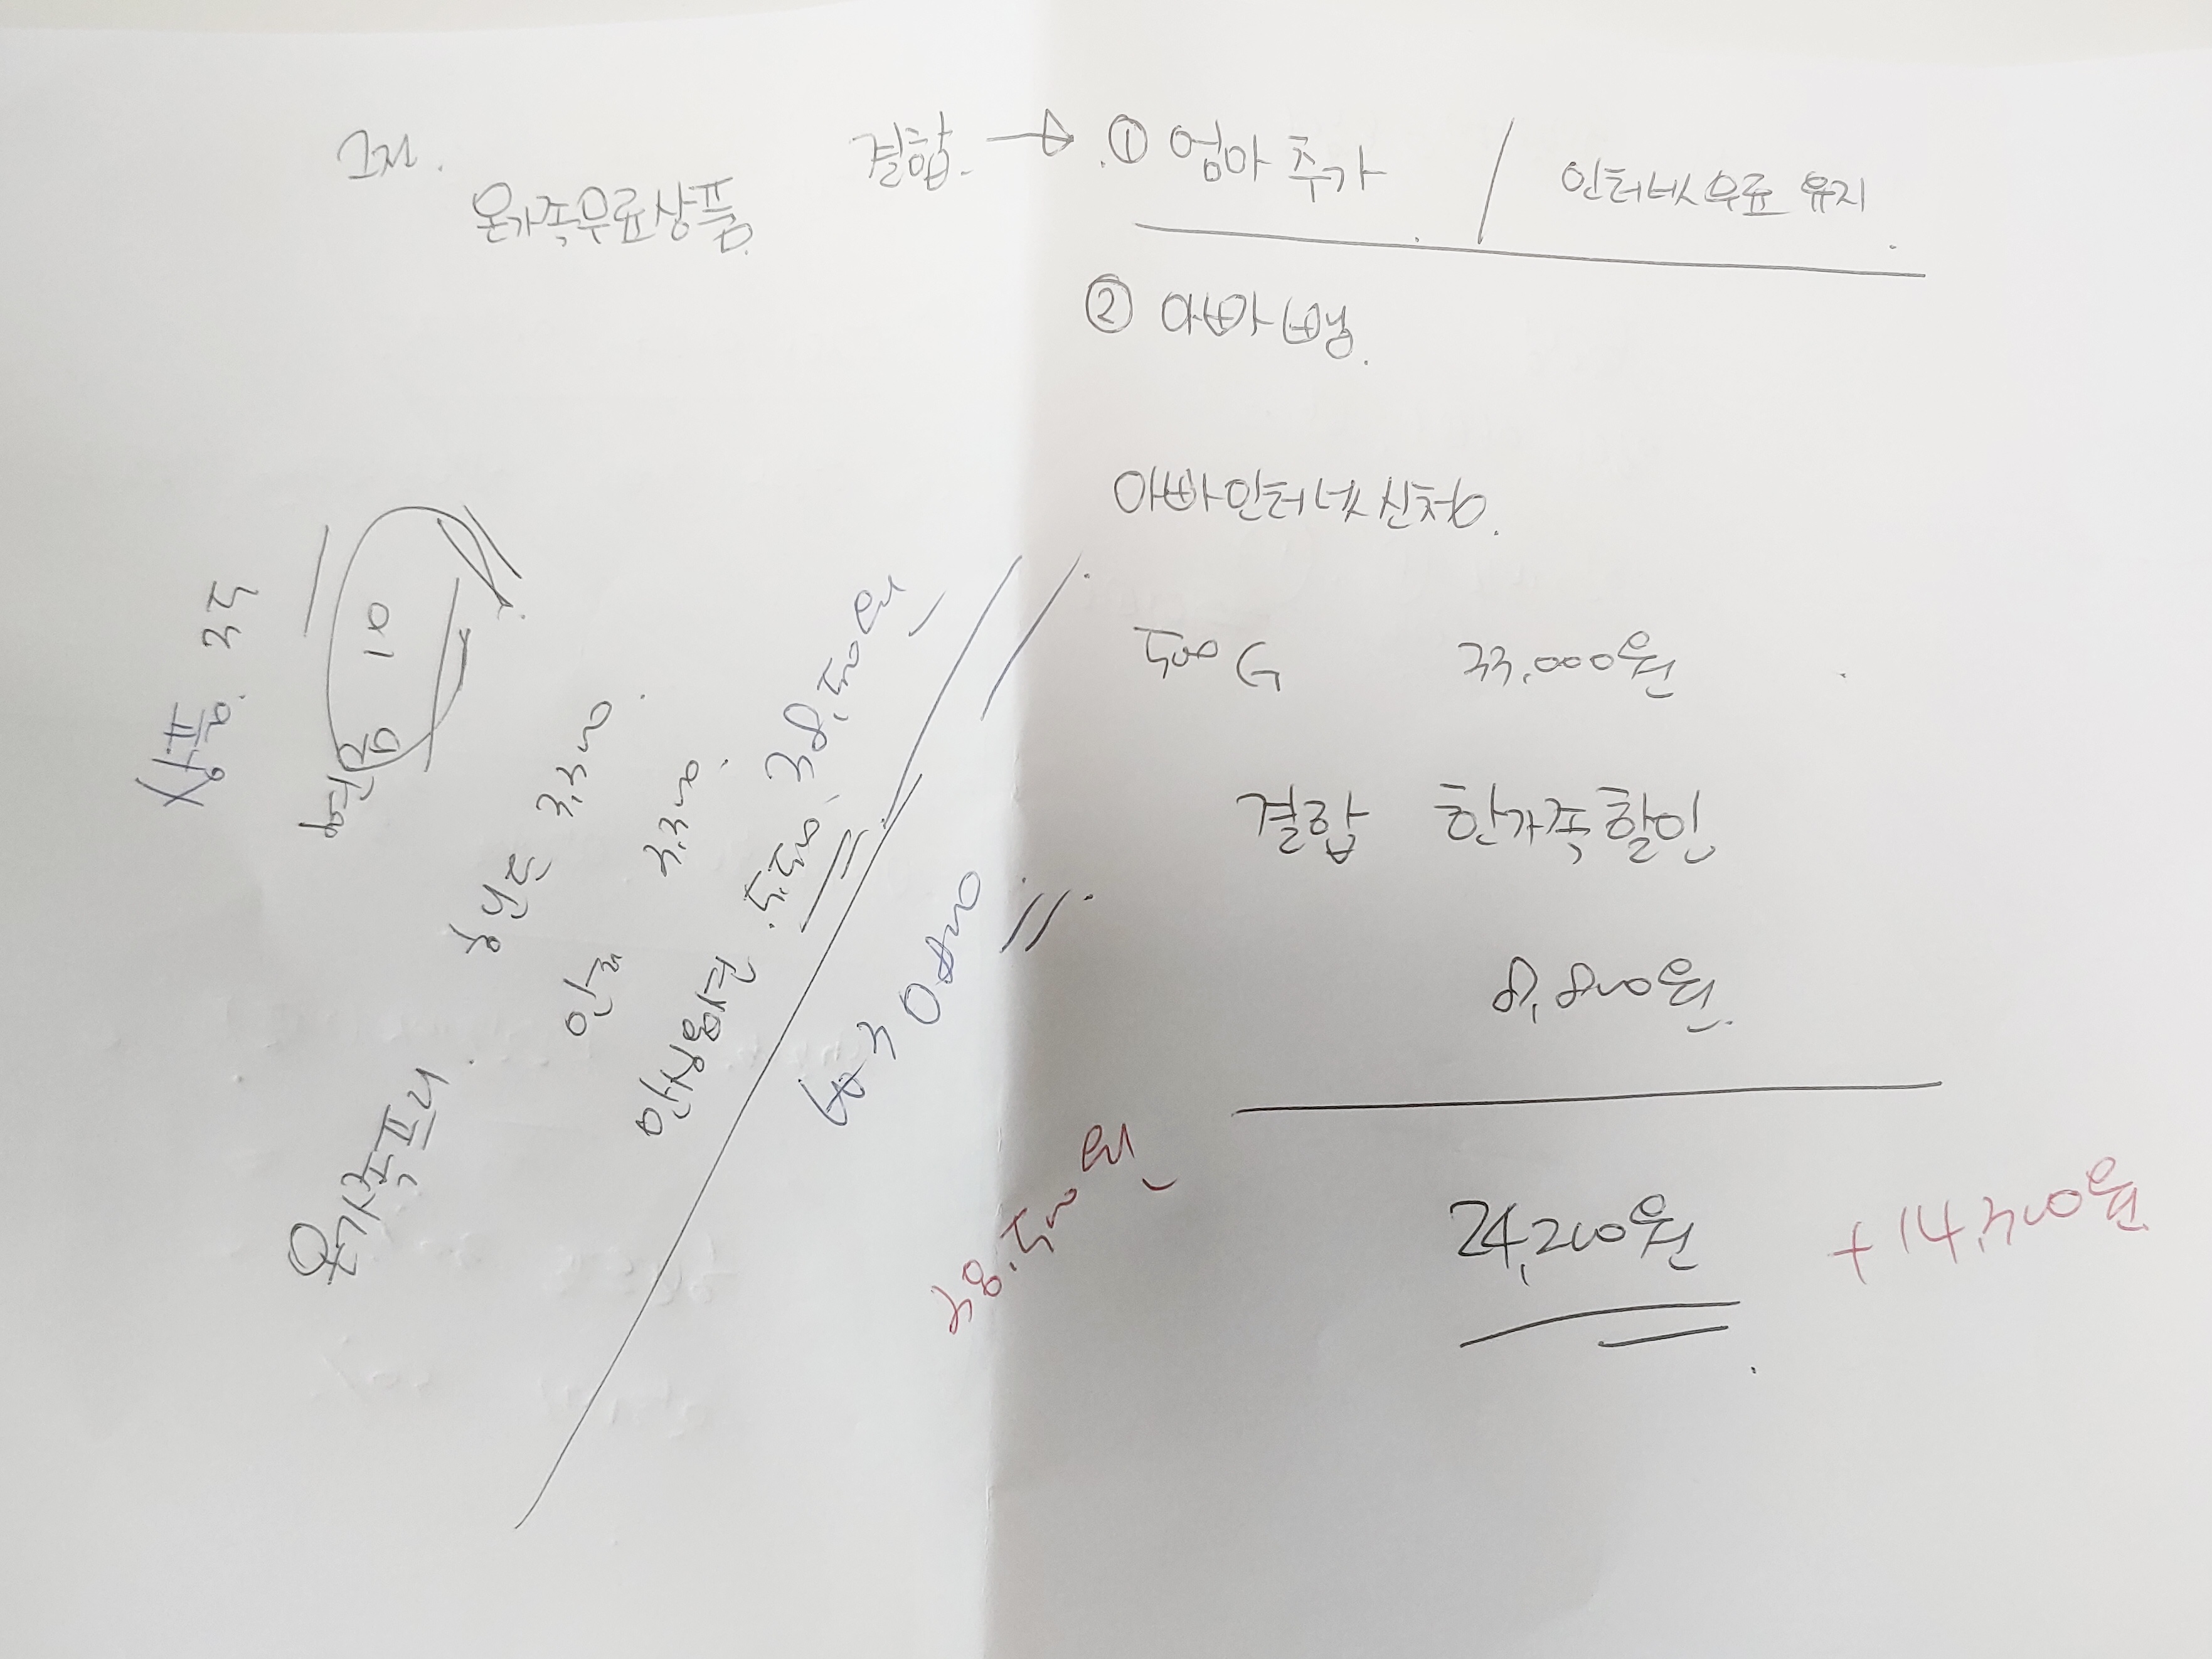 온가족무료상품
결합 → ① 엄마 추가 / 인터넷무료 유지
② 아빠
아빠인터넷신청.
500G 33,000원
결합 한가족할인
8,800원
24,200원 +14,300원
상품. 35
10
온가족프리
3,300
인터 3,300
5,500, 38,500원
38,500원